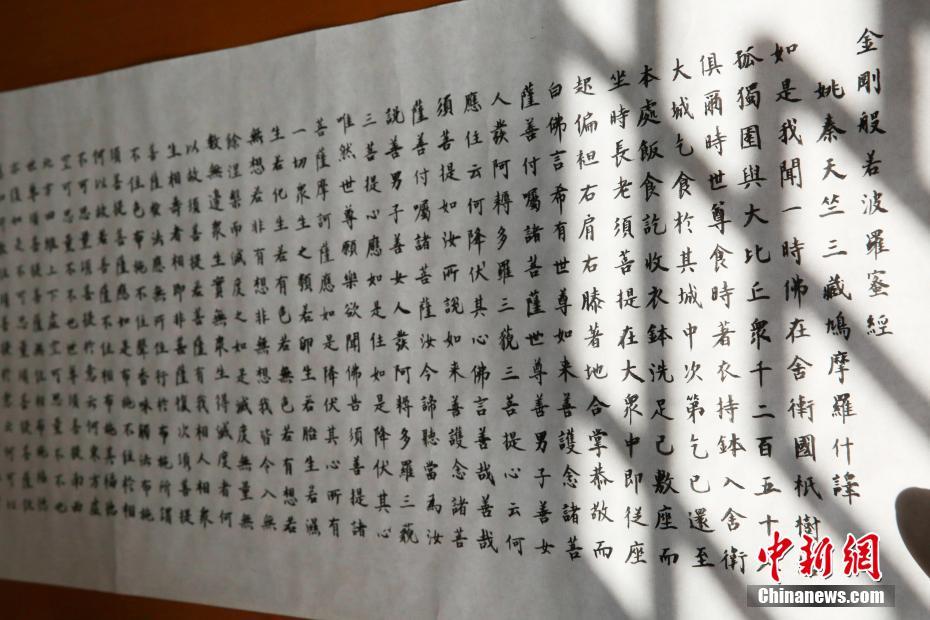 金剛般若波羅蜜經
姚秦天竺三藏鳩摩羅什譯
如是我聞一時佛在舍衛國祇樹
孤獨園與大比丘眾千二百五十人
俱爾時世尊食時著衣持鉢入舍衛
大城乞食於其城中次第乞已還至
本處飯食訖收衣鉢洗足已敷座而
坐時長老須菩提在大眾中即從座
起偏袒右肩右膝著地合掌恭敬而
白佛言希有世尊如來善護念諸菩
薩善付囑諸菩薩世尊善男子善女
人發阿耨多羅三藐三菩提心云何
應住云何降伏其心佛言善哉善哉
須菩提如汝所說如來善護念諸菩
薩善付囑諸菩薩汝今諦聽當為汝
說善男子善女人發阿耨多羅三藐
三菩提心應如是住如是降伏其心
唯然世尊願樂欲聞佛告須菩提諸
菩薩摩訶薩應如是降伏其心所有
一切眾生之類若卵生若胎生若濕
生若化生若有色若無色若有想若
無想若非有想非無想我皆令入無
餘涅槃而滅度之如是滅度無量無
數無邊眾生實無眾生得滅度者何
以故須菩提若菩薩有我相人相眾
生相壽者相即非菩薩復次須菩提
菩薩於法應無所住行於布施所謂
不住色布施不住聲香味觸法布施
須菩提菩薩應如是布施不住於相
何以故若菩薩不住相布施其福德
不可思量須菩提於意云何東方虛
中新網
Chinanews.com